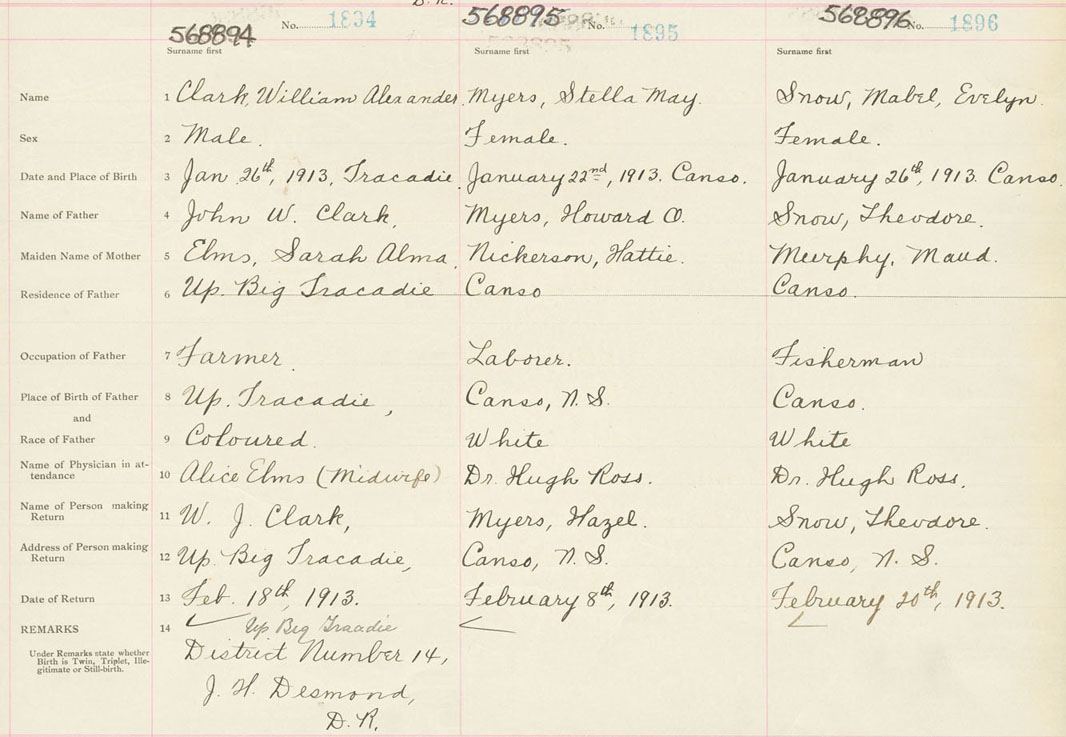 D. R.
568894 No. 1894 568895 No. 1895 568896 No. 1896
Surname first Surname first Surname first
Name 1 Clark, William Alexander. Myers, Stella May. Snow, Mabel, Evelyn.
Sex 2 Male. Female. Female.
Date and Place of Birth 3 Jan 26th, 1913, Tracadie. January 22nd, 1913. Canso. January 26th, 1913. Canso.
Name of Father 4 John W. Clark, Myers, Howard O. Snow, Theodore.
Maiden Name of Mother 5 Elms, Sarah Alma. Nickerson, Hattie. Murphy, Maud.
Residence of Father 6 Up. Big Tracadie Canso Canso.
Occupation of Father 7 Farmer. Laborer. Fisherman
Place of Birth of Father 8 Up. Tracadie, Canso, N. S. Canso.
and
Race of Father 9 Coloured. White White
Name of Physician in at-
tendance 10 Alice Elms (Midwife) Dr. Hugh Ross. Dr. Hugh Ross.
Name of Person making
Return 11 W. J. Clark, Myers, Hazel. Snow, Theodore.
Address of Person making
Return 12 Up. Big Tracadie, Canso, N. S. Canso, N. S.
Date of Return 13 Feb. 18th, 1913. February 8th, 1913. February 20th, 1913.
REMARKS 14 Up Big Traadie
Under Remarks state whether
Birth is Twin, Triplet, Ille-
gitimate or Still-birth.
District Number 14,
J. H. Desmond,
D. R.